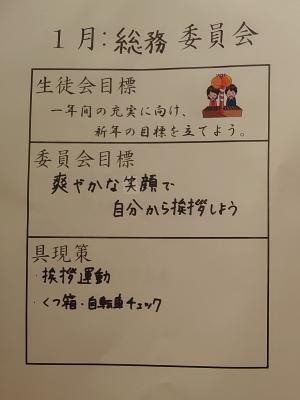 1月:総務委員会
生徒会目標
一年間の充実に向け、
新年の目標を立てよう。
委員会目標
爽やかな笑顔で
自分から挨拶しよう
具現策
・挨拶運動
・くつ箱・自転車チェック